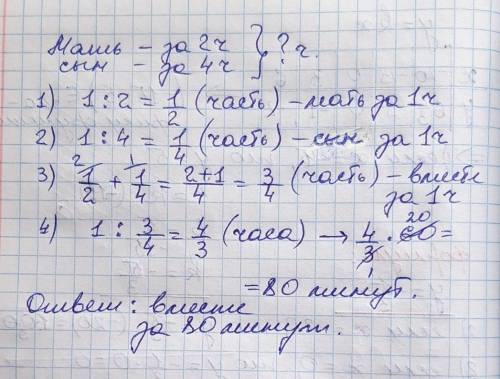 Мать – за 2ч } ? ч.
сын – за 4ч
1) 1 : 2 = 1/2 (часть) – мать за 1ч
2) 1 : 4 = 1/4 (часть) – сын за 1ч
3) 1/2 + 1/4 = 2+1/4 = 3/4 (часть) – вместе
за 1ч
4) 1 : 3/4 = 4/3 (часа) → 4/3 · 60 =
= 80 минут.
Ответ: вместе
за 80 минут.